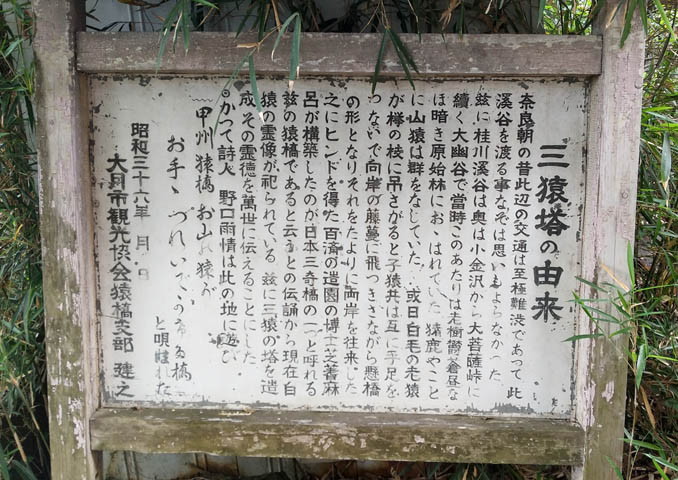 三猿塔の由来
奈良朝の昔此辺の交通は至極難渋であって 此
渓谷を渡る事なぞは思いもよらなかった
茲に桂川渓谷は奥は小金沢から大菩薩峠に
續く大幽谷で当時このあたりは老樹鬱蒼昼な
ほ暗き原始林におゝはれていた 猿鹿やこと
に山猿は群をなしていた 或日白毛の老猿
が樺の枝に吊さがると子猿共は互に手足を
つないで向岸の藤蔓に飛つきさながら懸橋
の形となりそれをたよりに両岸を往来した
之にヒントを得た百済の造園の博士芝蓍麻
呂が構築したのが日本三奇橋の一と呼れる
茲の猿橋であると云うとの伝誦から現在白
猿の霊像が祀られている 茲に三猿の塔を造
成その霊徳を萬世に伝えることにした
◎かつて詩人 野口雨情は此の地に遊び
甲州猿橋 お山の猿が
お手ゝ つれいで 橋
と唄はれた
昭和三十八年 月 日
大月市観光協会猿橋支部 建之